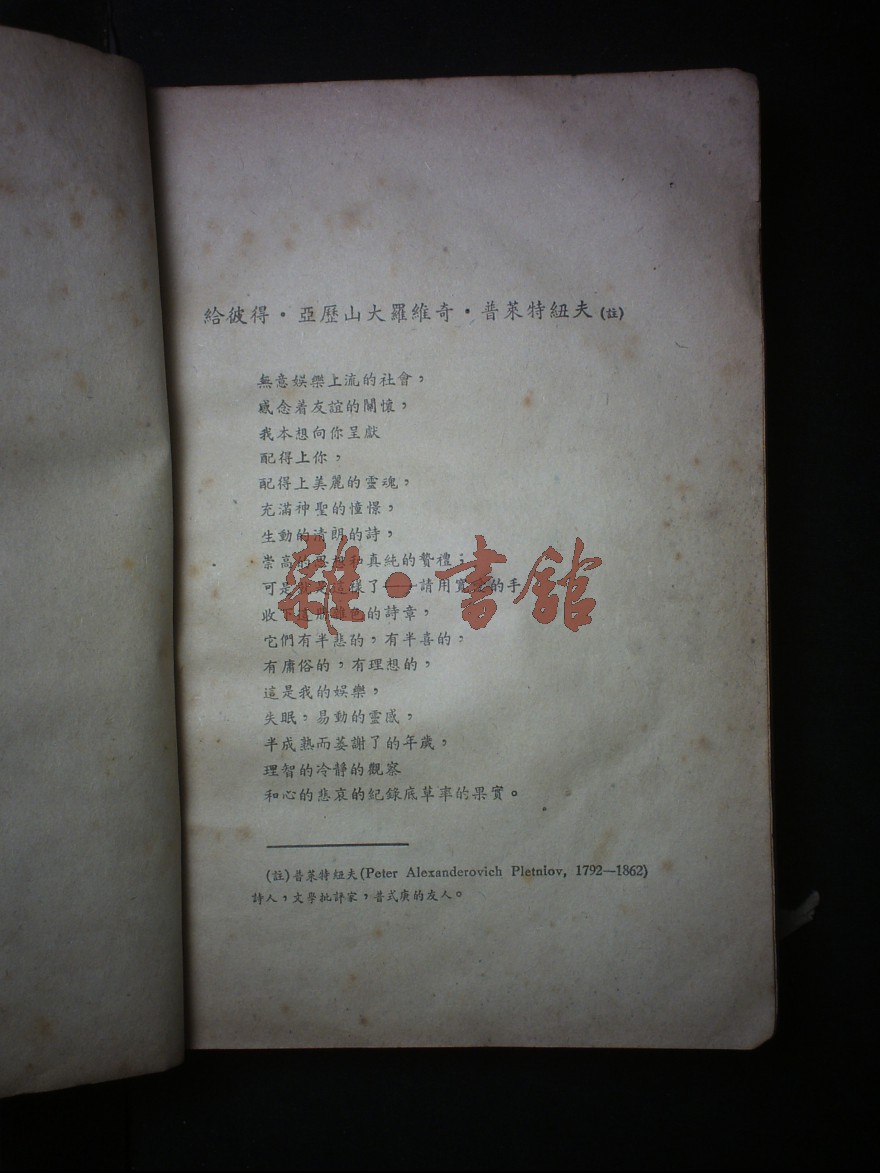 給彼得・亞歷山大羅維奇・普萊特紐夫(註)
無意娛樂上流的社會，
感念着友誼的關懷，
我本想向你呈獻
配得上你，
配得上美麗的靈魂，
充滿神聖的憧憬，
生動的清朗的詩，
崇高的思想和真純的贄禮；
可是就是這樣了——請用寬容的手
收下這雜色的詩章，
它們有半悲的，有半喜的，
有庸俗的，有理想的，
這是我的娛樂，
失眠，易動的靈感，
半成熟而萎謝了的年歲，
理智的冷靜的觀察
和心的悲哀的紀錄底草率的果實。
(註)普萊特紐夫(Peter Alexanderovich Pletniov, 1792—1862)
詩人，文學批評家，普式庚的友人。
雜・書館